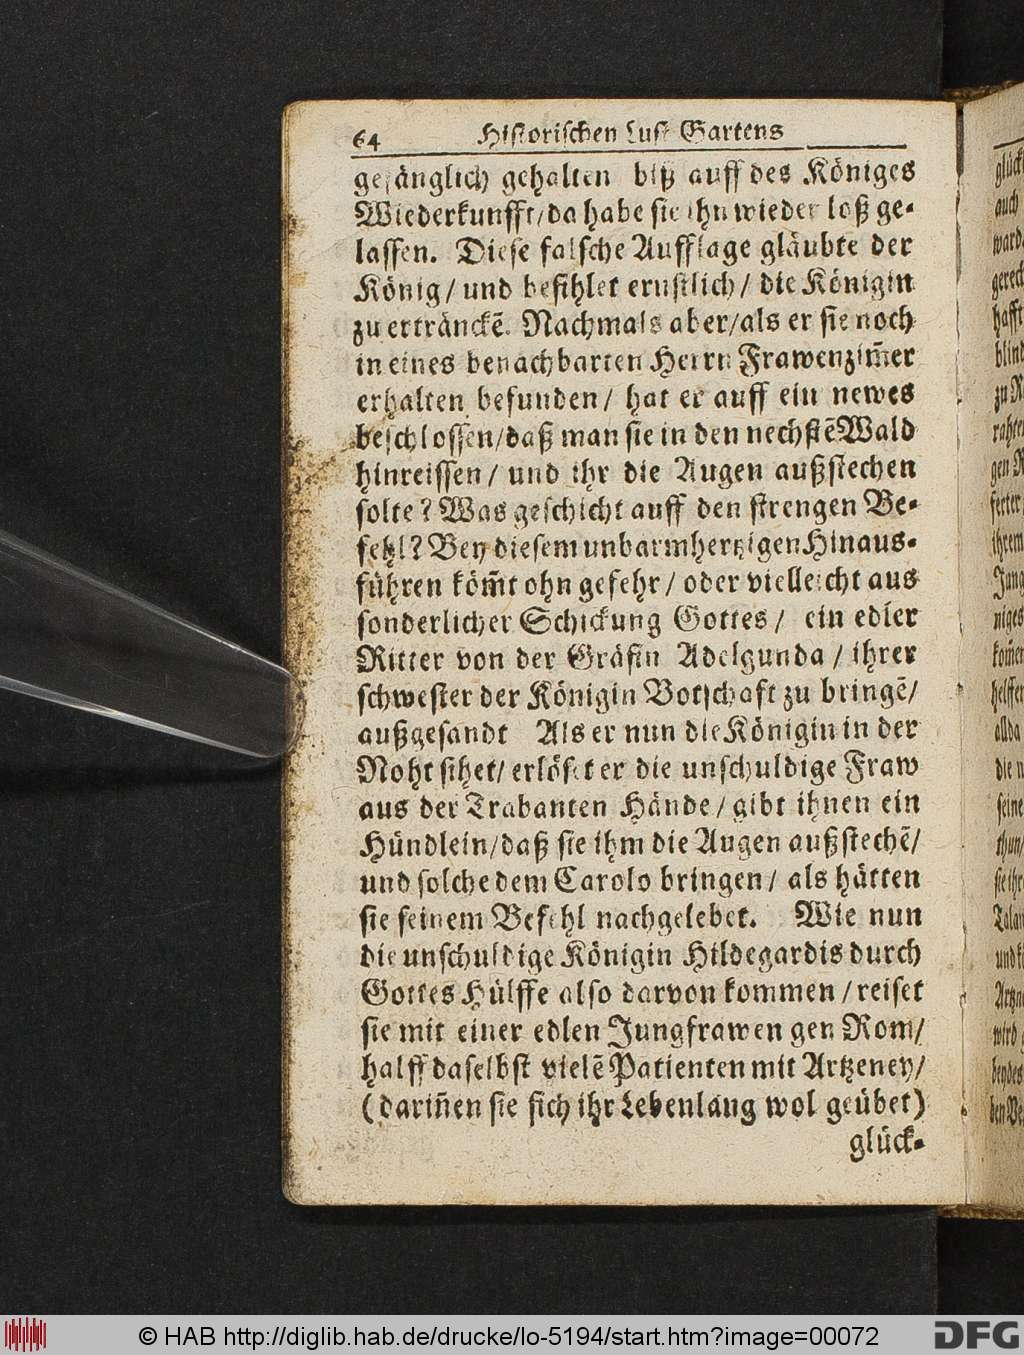 64 Historischen Lust Gartens
gefänglich gehalten biß auff des Königes
Wiederkunfft/da habe sie ihn wieder loß ge-
lassen. Diese falsche Aufflage gläubte der
König/ und befihlet ernstlich/ die Königin
zu ertränckẽ. Nachmals aber/als er sie noch
in eines benachbarten Herrn Frawenzim̃er
erhalten befunden/ hat er auff ein newes
beschlossen/daß man sie in den nechstẽ Wald
hinreissen/ und ihr die Augen außstechen
solte? Was geschicht auff den strengen Be-
fehl? Bey diesem unbarmhertzigen Hinaus-
führen köm̃t ohn gefehr/ oder vielleicht aus
sonderlicher Schickung Gottes/ ein edler
Ritter von der Gräfin Adelgunda/ ihrer
schwester der Königin Botschaft zu bringẽ/
außgesandt Als er nun die Königin in der
Noht sihet/ erlöset er die unschuldige Fraw
aus der Trabanten Hände/ gibt ihnen ein
Hündlein/daß sie ihm die Augen außstechẽ/
und solche dem Carolo bringen/ als hätten
sie seinem Befehl nachgelebet. Wie nun
die unschuldige Königin Hildegardis durch
Gottes Hülffe also darvon kommen/ reiset
sie mit einer edlen Jungfrawen gen Rom/
halff daselbst vielẽ Patienten mit Artzeney/
(darin̄en sie sich ihr Lebenlang wol geübet)
glück-
glück
auch
gerech
hafft
blind
zu R
gen R
ihrem
Jung
niges
kom̃en
helffen
allda
die n
seine
thun/
sie ihr
wird
beydes
© HAB http://diglib.hab.de/drucke/lo-5194/start.htm?image=00072
DFG